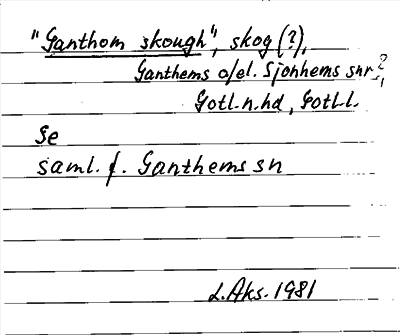 "Ganthom skough", skog (?),
Ganthems o/el. Sjonhems snr?,
Gotl.n.hd, Gotl.l.
Se
saml. f. Ganthems sn
L.Aks. 1981